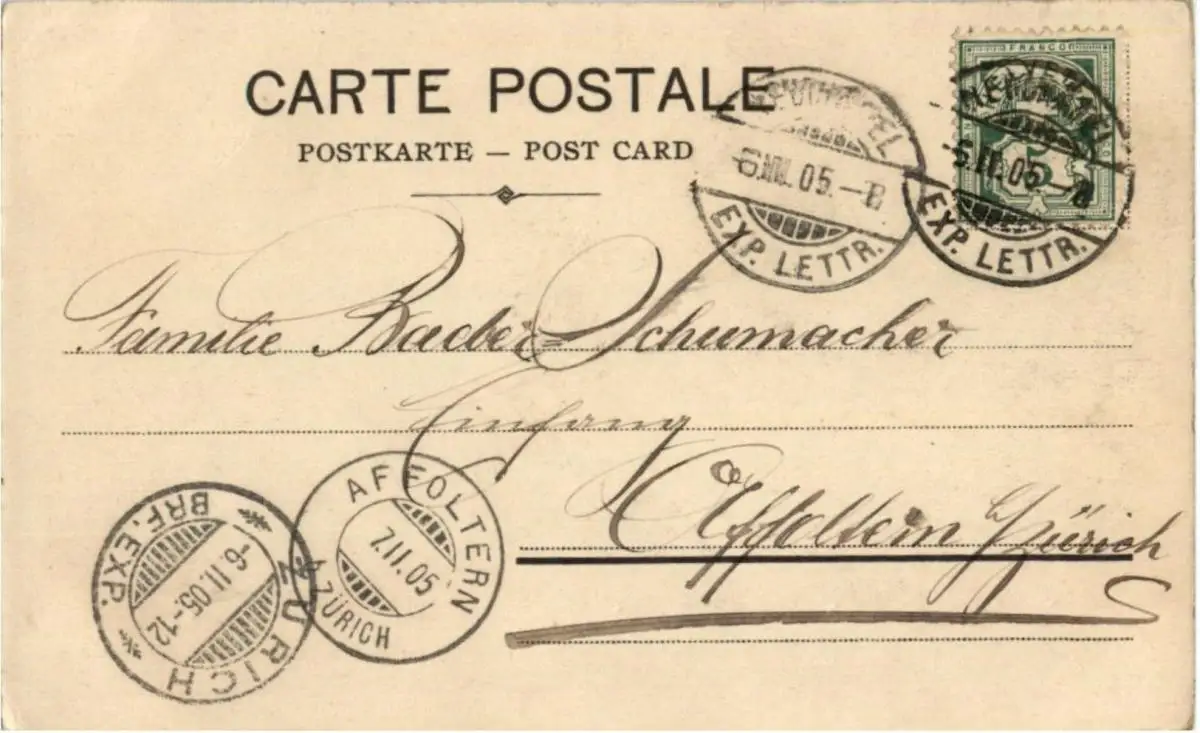 CARTE POSTALE
POSTKARTE — POST CARD
FRANCO
HELVETIA
5
NEUCHATEL
-6.II.05.-8
EXP. LETTR.
NEUCHATEL
-6.II.05.-8
EXP. LETTR.
Familie Baeber=Schumacher
Einfang
Affoltern b/ Zürich
AFFOLTERN
7.II.05
b. ZÜRICH
ZÜRICH
-6.II.05.-12
BRF. EXP.